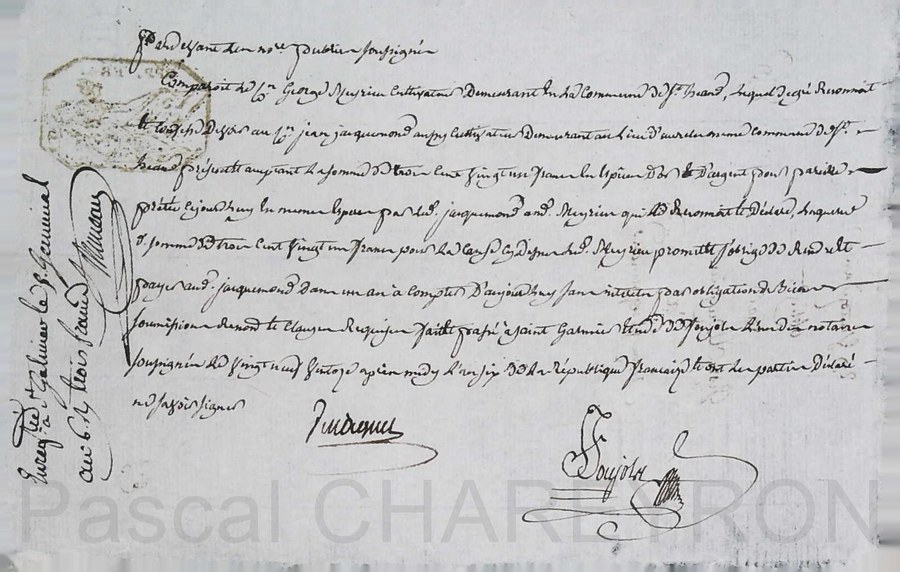 Pardevant les nores publics soussignés
Comparoit le Cn George Meyrieu Cultivateur Demeurant en la Commune de St. heand, lequel de gré Reconnoit
et Confesse Devoir au Cn jean jacquemond aussy Cultivateur Demeurant au Lieu d' même Commune de St.
heand présent acceptant La somme de trois Cent Vingt un francs En Espèce D'or & D'argent pour pareille
prêtée cejourd'huy En mêmes Espèces par led. jacquemond aud. Meyrieu qui Reconnoit et Déclare, Laquelle
d. somme de trois Cent Vingt un francs pour La Cause Cydessus led. Meyrieu promet et s'oblige de Rendre et
payer aud. jacquemond Dans un an à Compter D'aujourd'huy sans intérêts par obligation de Biens
soumissions Renonc. et Clauses Requises fait et passé à saint Galmier Etude de Poujola L'un des notaires
soussignés Le Vingt neuf Ventose après midy L'an six de La République française et ont les parties Déclaré
ne savoir signer
Poujola
Enregistré à St Galmier le 6 Germinal
an 6 trois francs
Pascal CHAREYRON